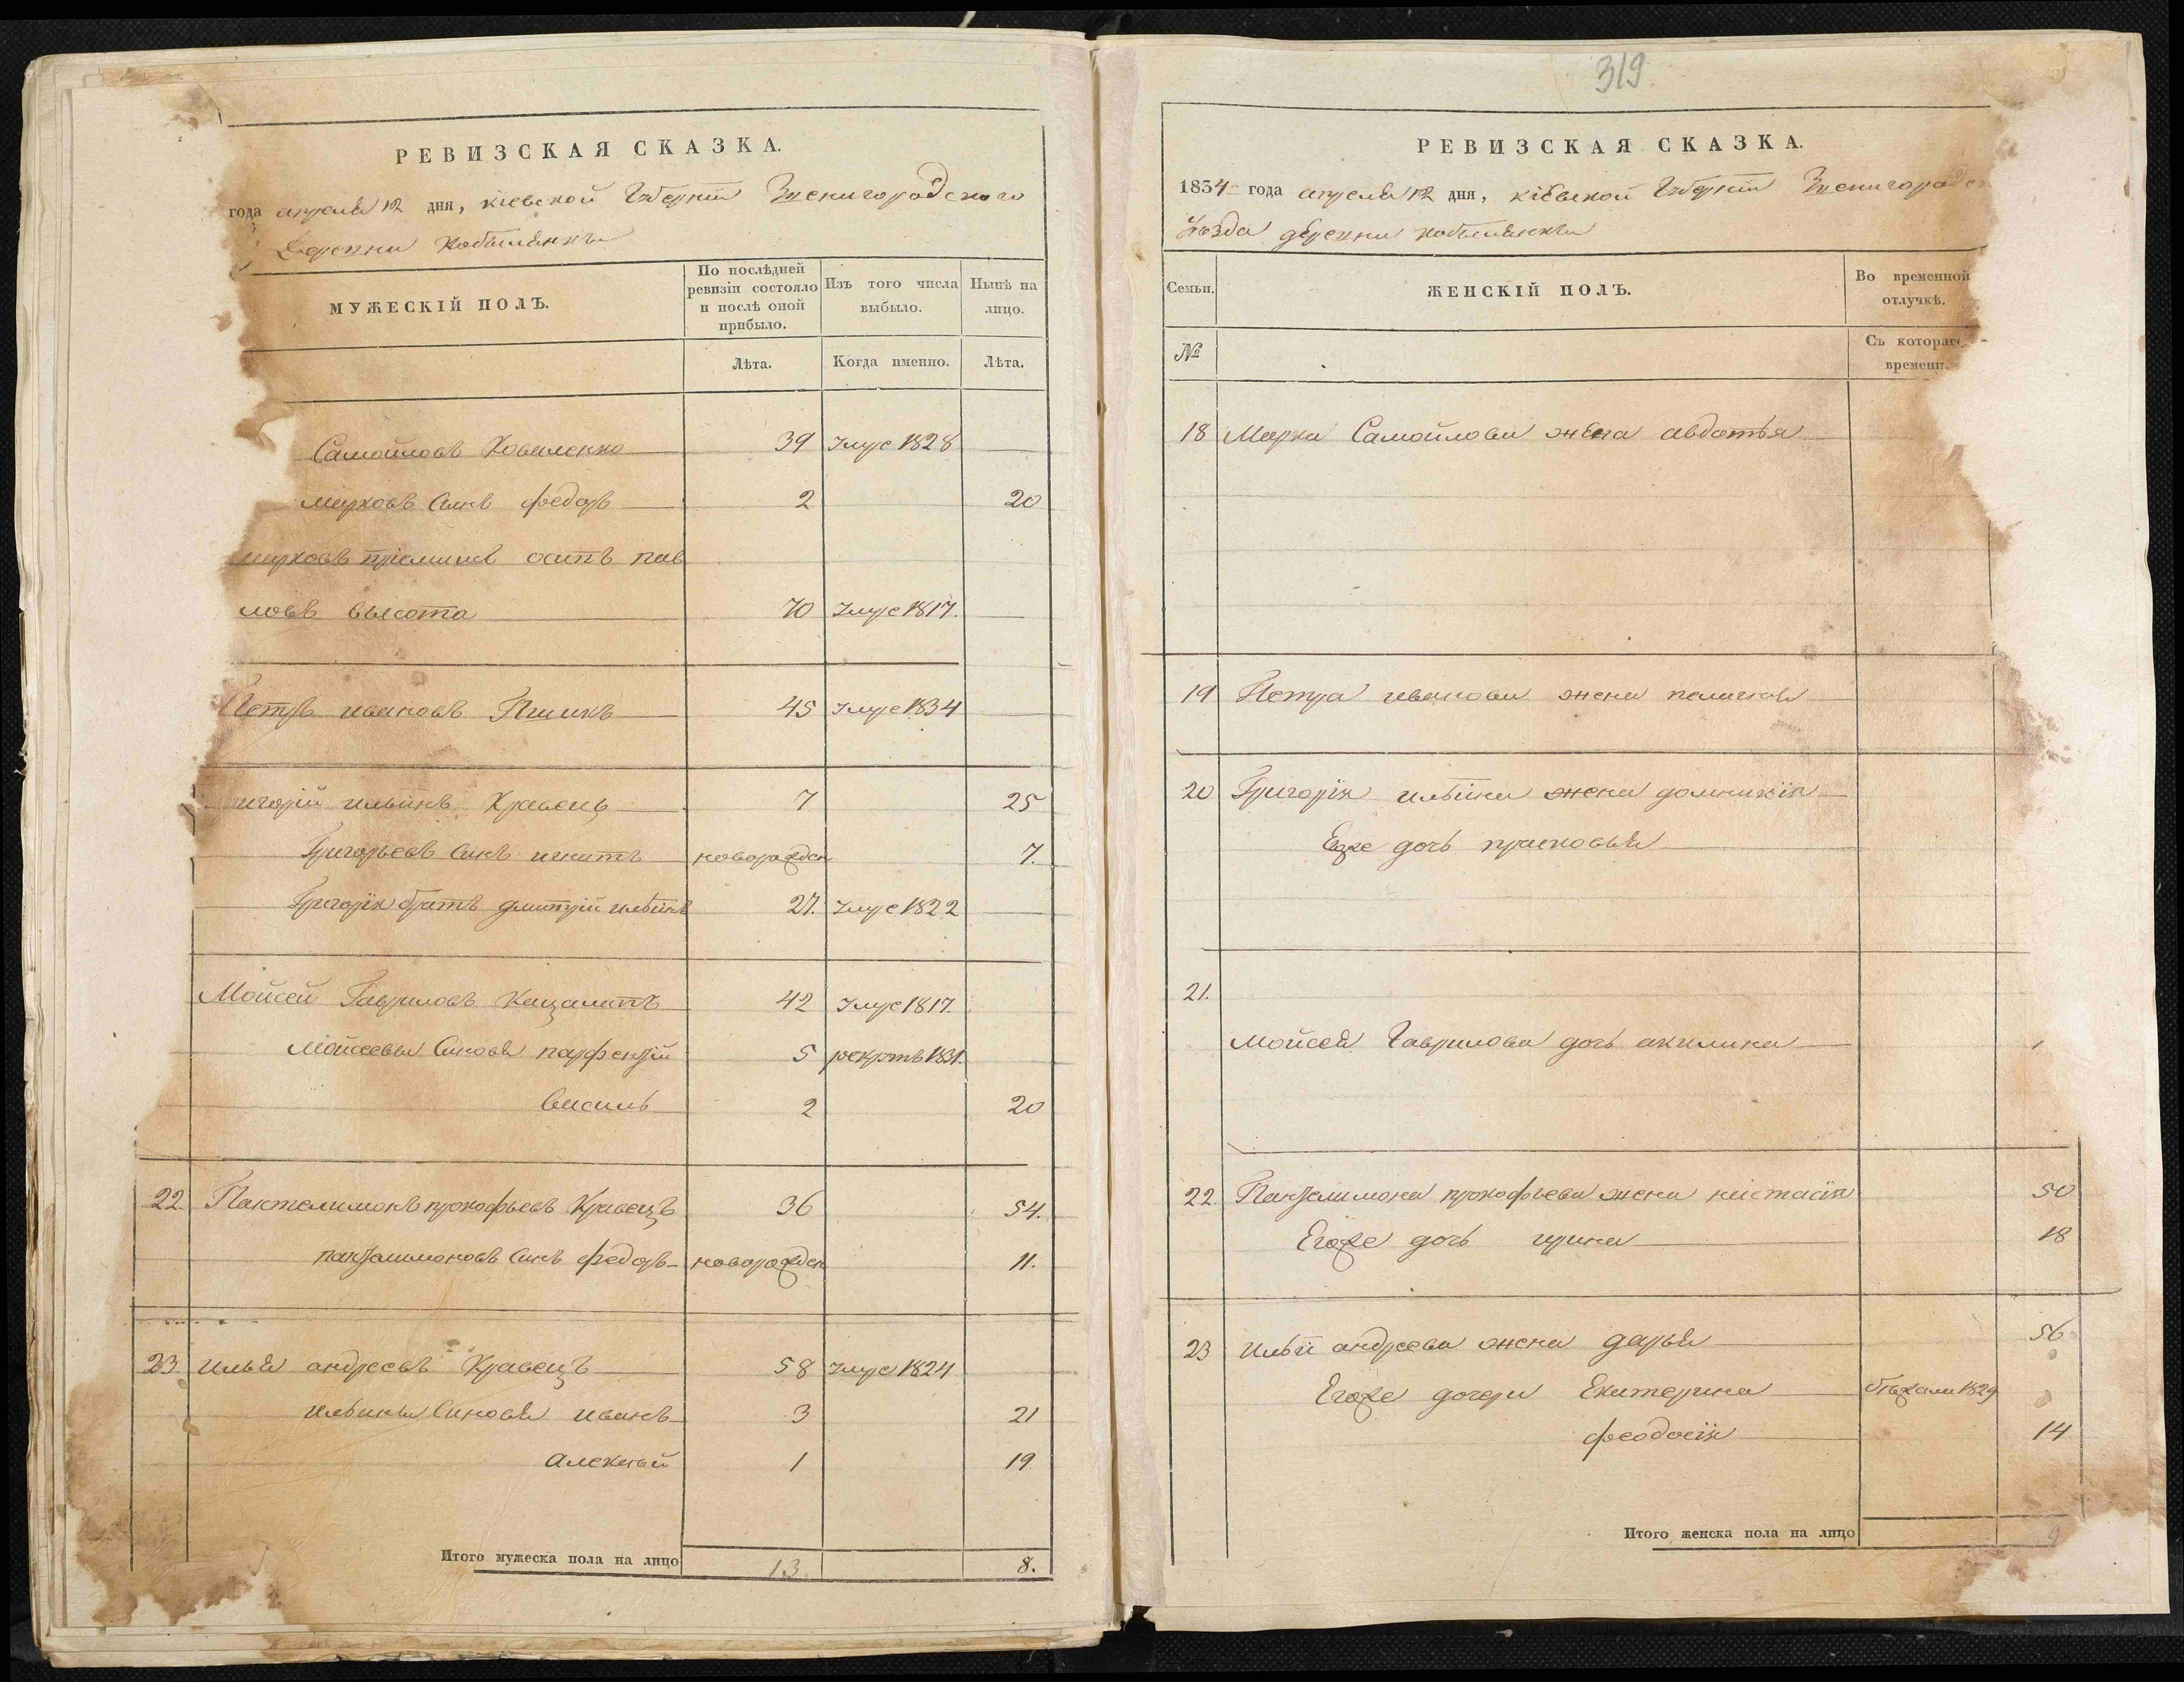 РЕВИЗСКАЯ СКАЗКА.
года апреля 12 дня, кіевской Губерніи Звенигородского
Деревни Кобылянки
МУЖЕСКІЙ ПОЛЪ.
По послѣдней ревизіи состояло и послѣ оной прибыло.
Изъ того числа выбыло.
Нынѣ на лицо.
Лѣта.
Когда именно.
Лѣта.
Самойловъ Коваленко 39 Умре 1828
марковъ Сынъ федоръ 2 20
марковъ пріемышъ осипъ пав
ловъ высота 70 Умре 1817.
Петръ ивановъ 45 Умре 1834
игорій ильинъ Кравецъ 7 25
Григорьевъ Сынъ игнатъ новорожден 7.
Григорія братъ дмитрій ильинъ 27. Умре 1822
Мойсей Гавриловъ 42 Умре 1817.
Мойсеевы Сыновья парфентій 5 рекрутъ 1831.
Василь 2 20
22. Пантелимонъ прокофьевъ Кравецъ 36 54.
пантелимоновъ Сынъ федоръ новорожден 11.
23. илья андреевъ Кравецъ 58 Умре 1824
ильины Сыновья иванъ 3 21
алексѣй 1 19
Итого мужеска пола на лицо 13. 8.
319
РЕВИЗСКАЯ СКАЗКА.
1834 года апреля 12 дня, кіевской Губерніи Звенигородск
Уезда деревни кобылянки
Семьи.
ЖЕНСКІЙ ПОЛЪ.
Во временной отлучкѣ.
№
Съ котораго времени.
18 Марка Самойлова жена авдотья
19 Петра иванова жена пелагея
20 Григорія ильина жена домникія
Егоже дочь прасковья
21.
Мойсея Гаврилова дочь акилина
22. Пантелимона прокофьева жена настасія 50
Егоже дочь ирина 18
23 ильи андреева жена дарья 56
Егоже дочери Екатерина бѣжали 1829
феодосія 14
Итого женска пола на лицо 9